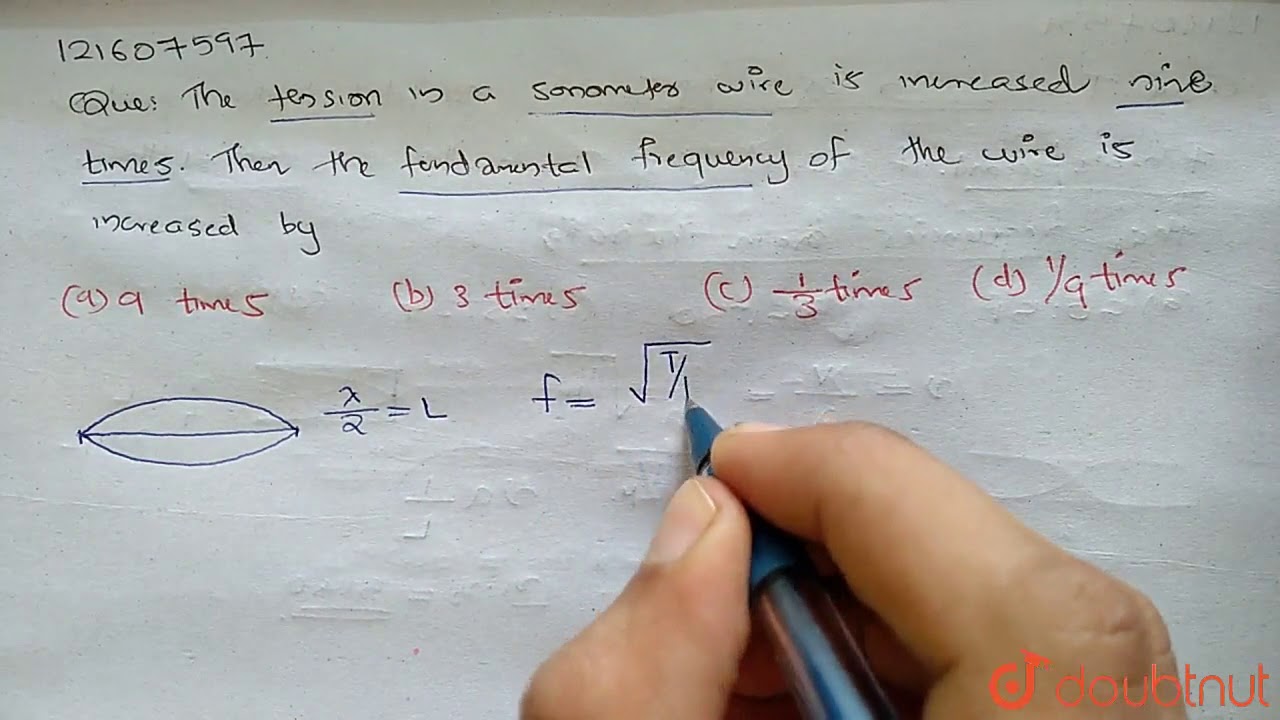 121607597
Que: The tension in a sonometer wire is increased nine
times. Then the fundamental frequency of the wire is
increased by
(a) 9 times (b) 3 times (c) 1/3 times (d) 1/9 times
λ/2 = L f = √T/
doubtnut